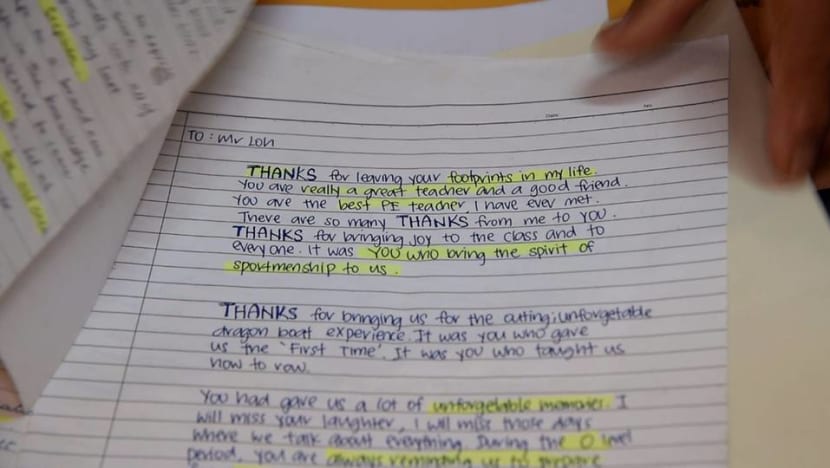 TO : Mr Loh
THANKS for leaving your footprints in my life.
You are really a great teacher and a good friend.
You are the best PE teacher, I have ever met.
There are so many THANKS from me to you.
THANKS for bringing joy to the class and to
everyone. It was YOU who bring the spirit of
sportmenship to us.
THANKS for bringing us for the outing; unforgetable
dragon boat experience. It was you who gave
us the 'First Time'. It was you who taught us
how to row.
You had gave us a lot of unforgetable memories. I
will miss your laughter, I will miss those days
where we talk about everything. During the O level
period, you are always reminding us to prepare